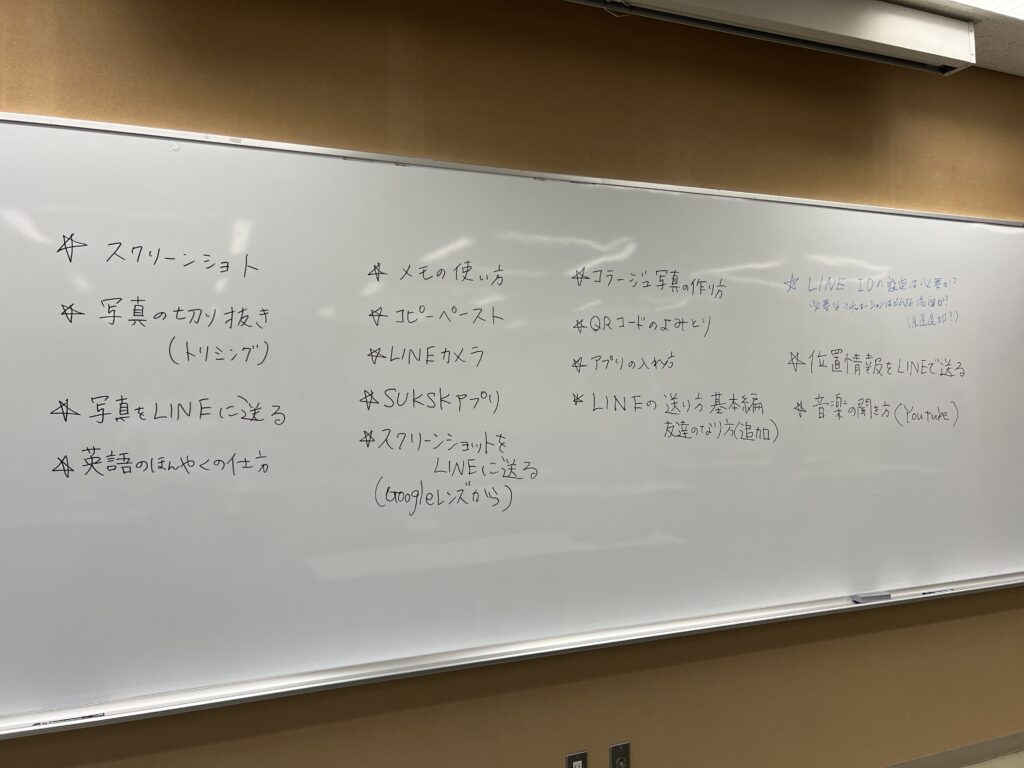 ☆ スクリーンショト
☆ 写真の切り抜き
(トリミング)
☆ 写真をLINEに送る
☆ 英語のほんやくの仕方
☆ メモの使い方
☆ コピーペースト
☆ LINEカメラ
☆ SUKSKアプリ
☆ スクリーンショットを
LINEに送る
(Googleレンズから)
☆ コラージュ写真の作り方
☆ QRコードのよみとり
☆ アプリの入れ方
☆ LINEの送り方 基本編
友達のなり方(追加)
☆ LINE IDの設定は必要か?
必要なシチュエーションはどんな場面か?
☆ 位置情報をLINEで送る
☆ 音楽の聞き方(Youtube)